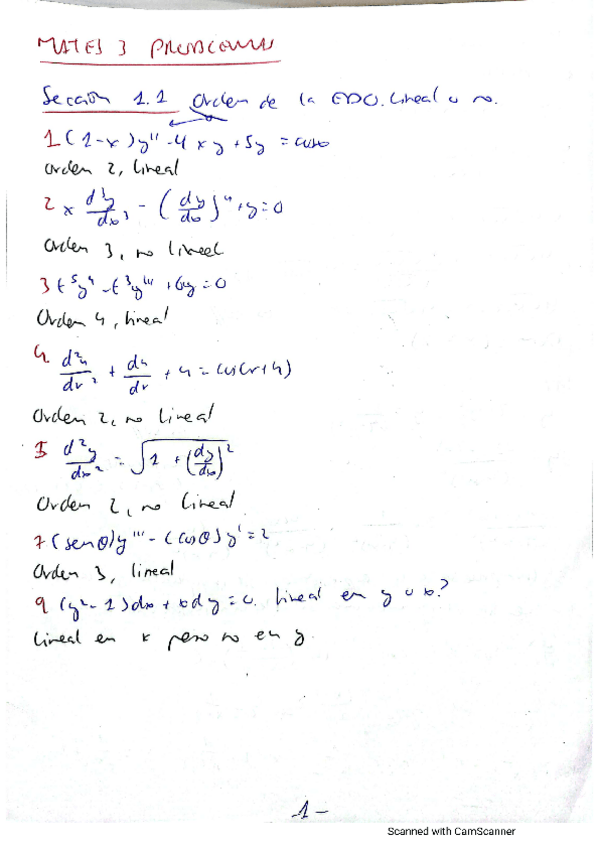 MATES 3 PROBLEMAS
Sección 1.1 Orden de la EDO. Lineal o no.
1 (1-x)y'' -4xy +5y = cosx
Orden 2, lineal
2 x d³y/dx³ - (dy/dx)⁴ + y = 0
Orden 3, no lineal
3 t⁵y⁴ - t³y''' + 6y = 0
Orden 4, lineal
4 d²u/dr² + du/dr + u = cos(r+u)
Orden 2, no lineal
5 d²y/dx² = √(1 + (dy/dx)²)
Orden 2, no lineal
7 (senθ)y''' - (cosθ)y' = 2
Orden 3, lineal
9 (y²-1)dx + xdy = 0. Lineal en y o x?
Lineal en x pero no en y.
-1-
Scanned with CamScanner